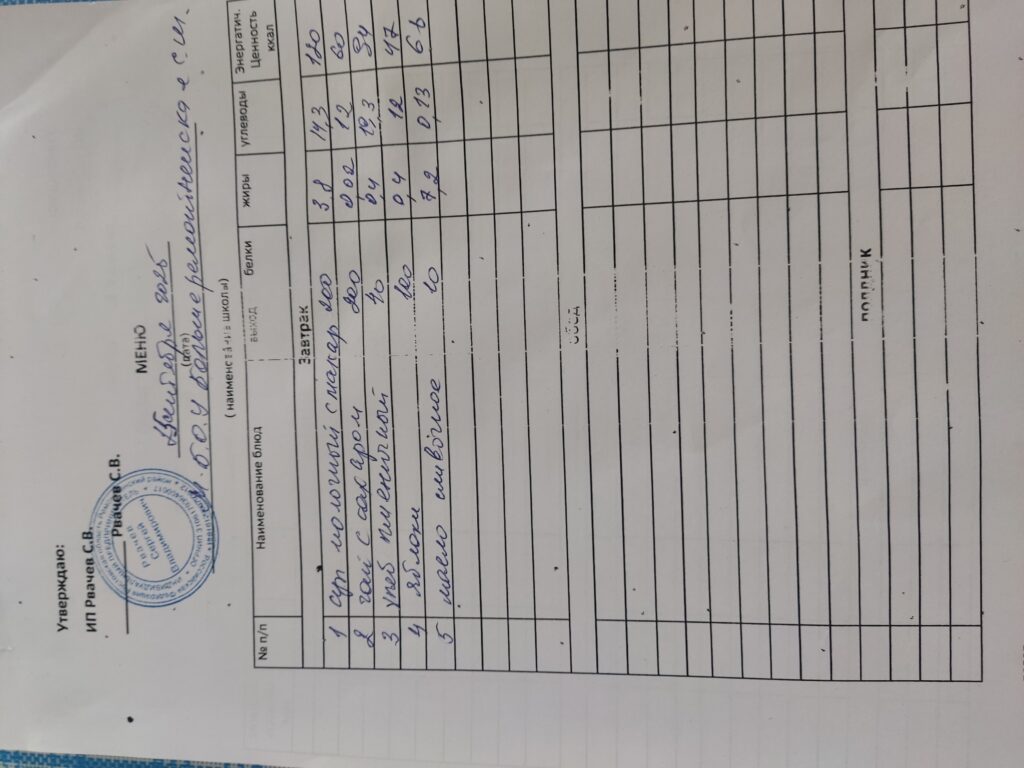 Утверждаю:
ИП Рвачев С.В.
Рвачев С.В.
МЕНЮ
октября 2025
(дата)
Б.О.У Большеремонтненская с.ш.
( наименование школы)
№ п/п Наименование блюд выход белки жиры углеводы Энергатич. Ценность ккал
Завтрак
1 суп молочный с макар 200 3,8 14,3 120
2 чай с сахаром 200 0,02 12 60
3 хлеб пшеничный 40 0,4 19,3 94
4 яблоки 100 0,4 12 47
5 масло сливочное 10 7,2 0,13 66
обед
ПОЛДНИК